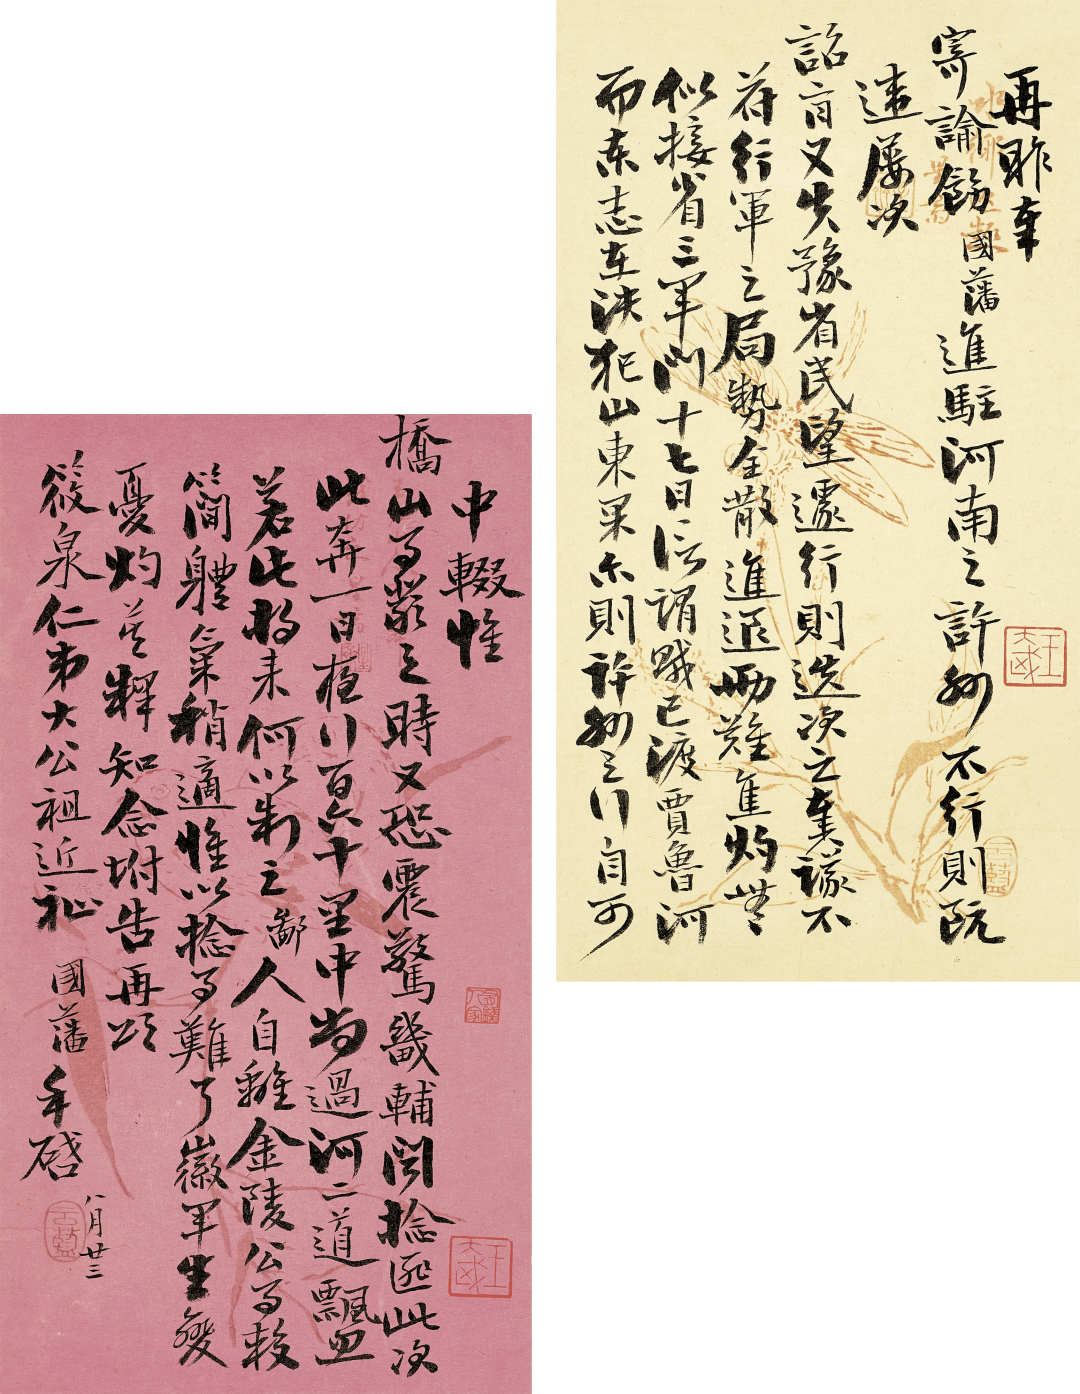 再昨奉
寄諭飭國藩進駐河南之許州不行則既
違屢次
詔旨又失豫省民望遽行則迭次之奏議不
符行軍之局勢全散進退兩難焦灼無
似接省三軍門十七日信謂賊已渡賈魯河
而東志在決犯山東果尓則許州之行自可
中輟惟
橋山事嚴之時又恐震驚畿輔聞捻匪此次
此奔一日極行百六十里中尚過河二道飄忽
若此將來何以制之鄙人自離金陵公事較
簡體氣稍適惟以捻事難了徽軍生變
憂灼莫釋知念坿告再頌
筱泉仁弟大公祖近祉 國藩手啓
八月廿三